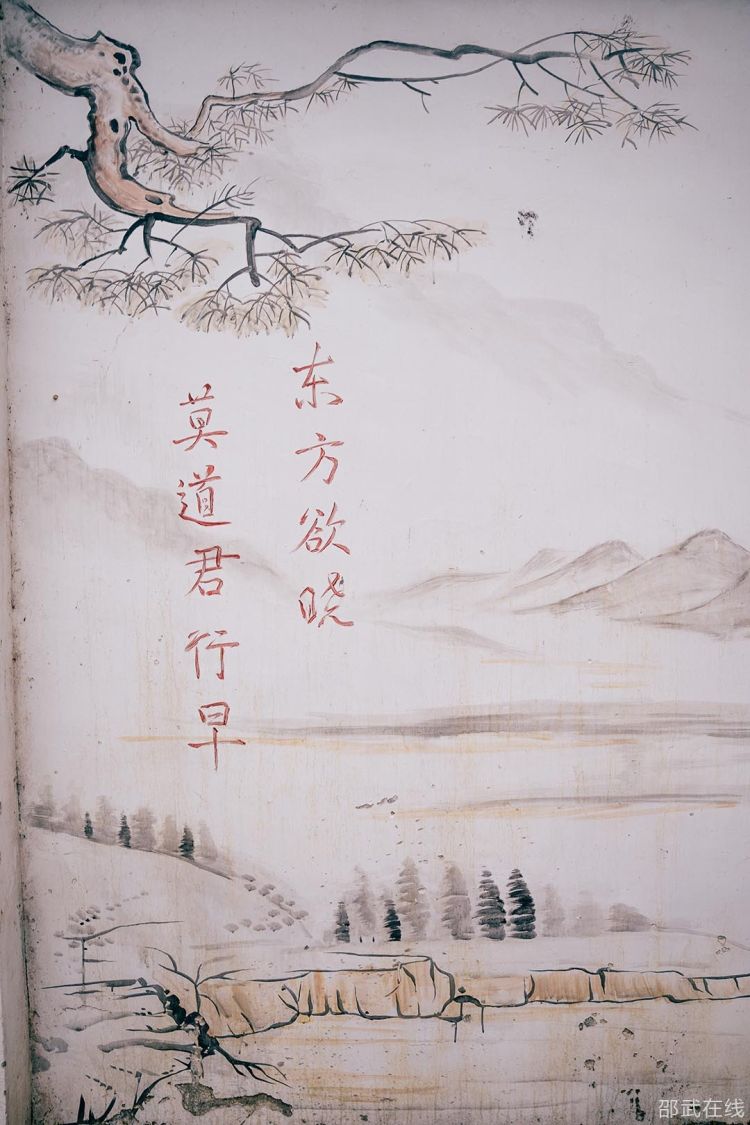 东方欲晓
莫道君行早
邵武在线